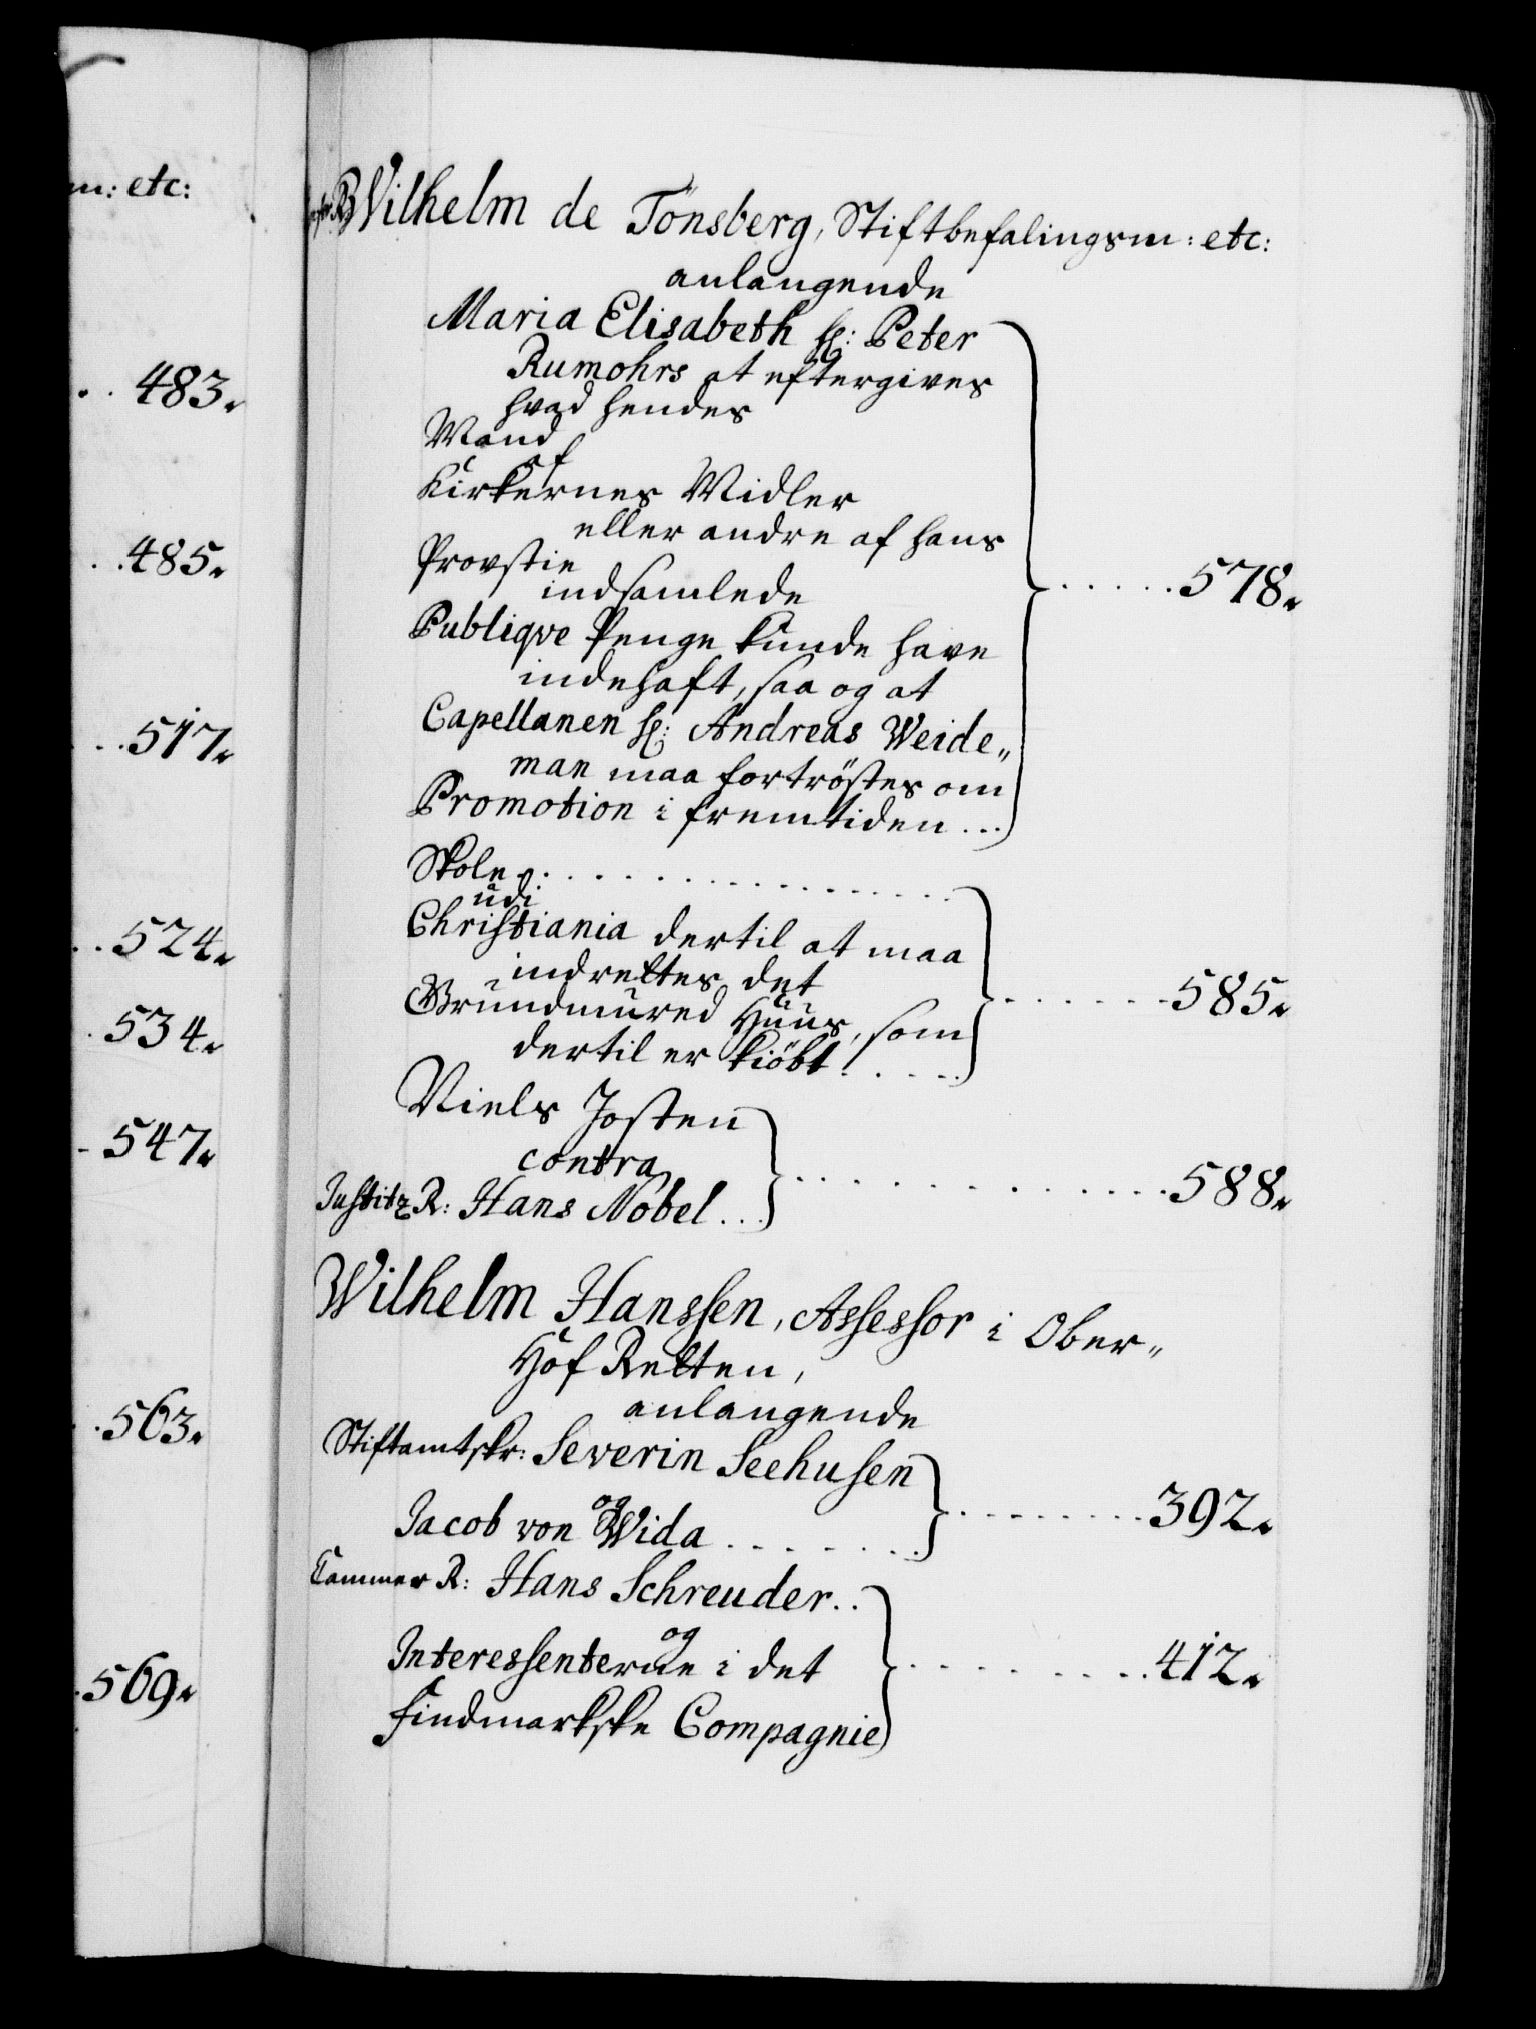 m: etc:
483.
485.
517.
524.
534.
547.
563.
569.
Wilhelm de Tönsberg, Stiftbefalingsm: etc:
anlangende
Maria Elisabeth sl: Peter
Rumohrs at eftergives
hvad hendes
Mand
af
Kirkernes Midler
eller andre af hans
Provstie
indsamlede
Publiqve Penge kunde have
indehaft, saa og at
Capellanen hr: Andreas Weide„
man maa fortröstes om
Promotion i fremtiden ... 578.
Skole
udi
Christiania dertil at maa
indrettes det
Grundmured Huus, som
dertil er kiöbt ..... 585.
Niels Josten
contra
Justitz R: Hans Nobel ... 588.
Wilhelm Hanssen, Assessor i Ober„
Hof Retten,
anlangende
Stiftamtskr: Severin Seehusen
og
Jacob von Wida ....... 392.
Cammer R: Hans Schreuder..
og
Interessenterne i det 412.
Findmarkske Compagnie